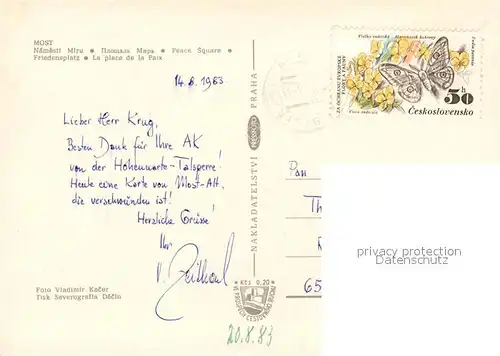 MOST
Náměstí Míru • Площадь Мира • Peace Square •
Friedensplatz • La place de la Paix
14.8.1983
Lieber Herr Krug,
Besten Dank für Ihre AK
von der Hohenwarte-Talsperre!
Heute eine Karte von Most-Alt,
die verschwunden ist!
Herzliche Grüsse!
Ihr
V.
Foto Vladimír Kačer
Tisk Severografia Děčín
20.8.83
NAKLADATELSTVÍ PRESSFOTO PRAHA
Kčs 0,20
ZA OCHRANU EVROPSKÉ
FLÓRY A FAUNY
50 h
Československo
Pan
Th
65
privacy protection
Datenschutz